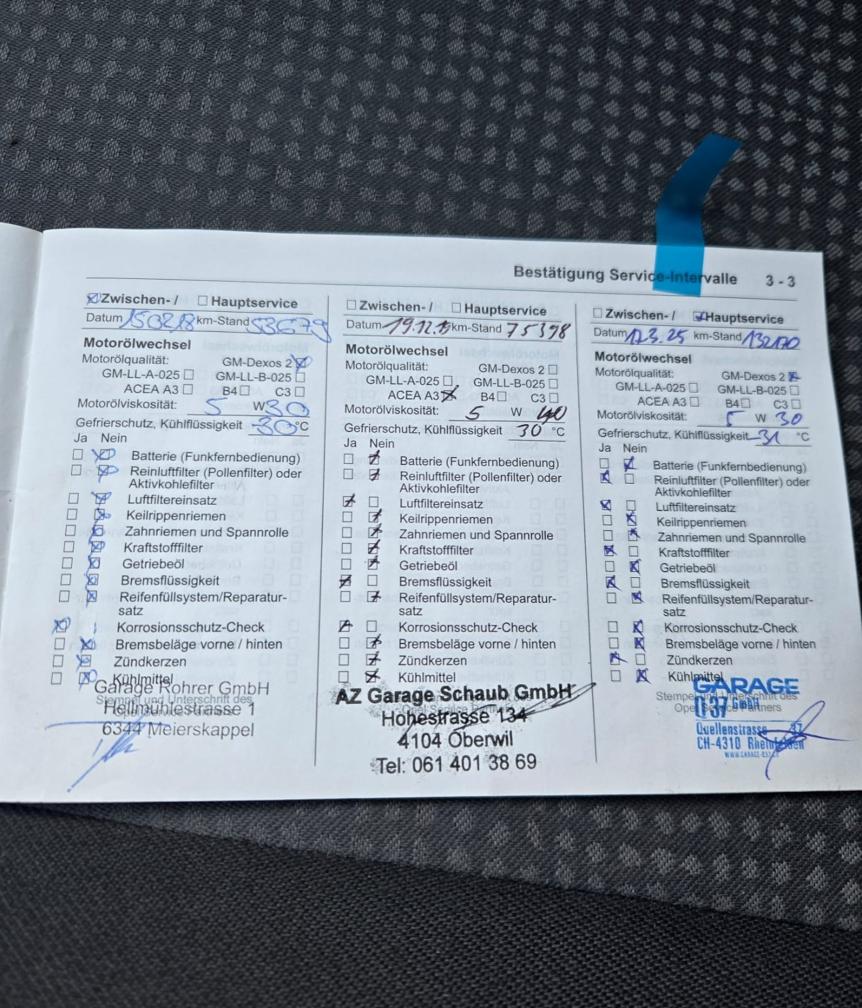 Bestätigung Service-Intervalle 3 - 3
Zwischen- / Hauptservice
Datum 150218 km-Stand 53679
Motorölwechsel
Motorölqualität: GM-Dexos 2
GM-LL-A-025 GM-LL-B-025
ACEA A3 B4 C3
Motorölviskosität: 5 W 30
Gefrierschutz, Kühlflüssigkeit -30 °C
Ja Nein
Batterie (Funkfernbedienung)
Reinluftfilter (Pollenfilter) oder
Aktivkohlefilter
Luftfiltereinsatz
Keilrippenriemen
Zahnriemen und Spannrolle
Kraftstofffilter
Getriebeöl
Bremsflüssigkeit
Reifenfüllsystem/Reparatur-
satz
Korrosionsschutz-Check
Bremsbeläge vorne / hinten
Zündkerzen
Kühlmittel
Stempel und Unterschrift des
Garage Rohrer GmbH
6344 Meierskappel
Zwischen- / Hauptservice
Datum 19.12. km-Stand 75398
Motorölwechsel
Motorölqualität: GM-Dexos 2
GM-LL-A-025 GM-LL-B-025
ACEA A3 B4 C3
Motorölviskosität: 5 W 40
Gefrierschutz, Kühlflüssigkeit 30 °C
Ja Nein
Batterie (Funkfernbedienung)
Reinluftfilter (Pollenfilter) oder
Aktivkohlefilter
Luftfiltereinsatz
Keilrippenriemen
Zahnriemen und Spannrolle
Kraftstofffilter
Getriebeöl
Bremsflüssigkeit
Reifenfüllsystem/Reparatur-
satz
Korrosionsschutz-Check
Bremsbeläge vorne / hinten
Zündkerzen
Kühlmittel
AZ Garage Schaub GmbH
Hohestrasse 134
4104 Oberwil
Tel: 061 401 38 69
Zwischen- / Hauptservice
Datum km-Stand
Motorölwechsel
Motorölqualität: GM-Dexos 2
GM-LL-A-025 GM-LL-B-025
ACEA A3 B4 C3
Motorölviskosität: 5 W 30
Gefrierschutz, Kühlflüssigkeit -31 °C
Ja Nein
Batterie (Funkfernbedienung)
Reinluftfilter (Pollenfilter) oder
Aktivkohlefilter
Luftfiltereinsatz
Keilrippenriemen
Zahnriemen und Spannrolle
Kraftstofffilter
Getriebeöl
Bremsflüssigkeit
Reifenfüllsystem/Reparatur-
satz
Korrosionsschutz-Check
Bremsbeläge vorne / hinten
Zündkerzen
Kühlmittel
Stempel und Unterschrift des
Opel Service Partners
GARAGE
GmbH
Quellenstrasse 37
CH-4310